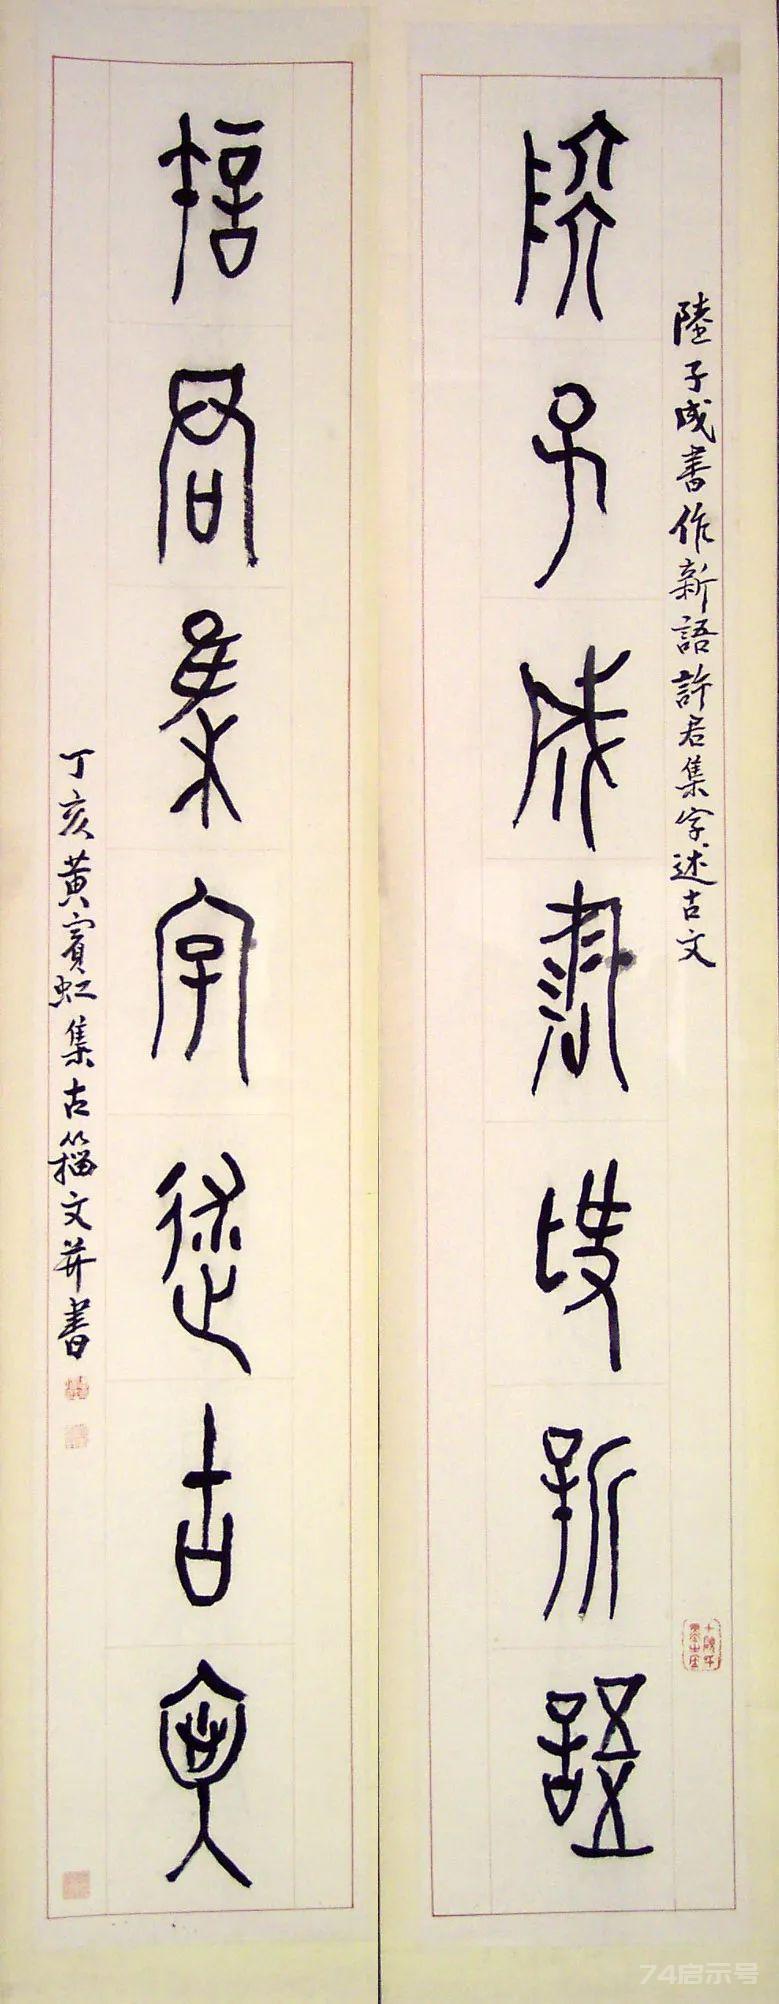 陸子成書作新語
陸子成書作新語許君集字述古文
許君集字述古文
丁亥黃賓虹集古籀文并書
74启示号